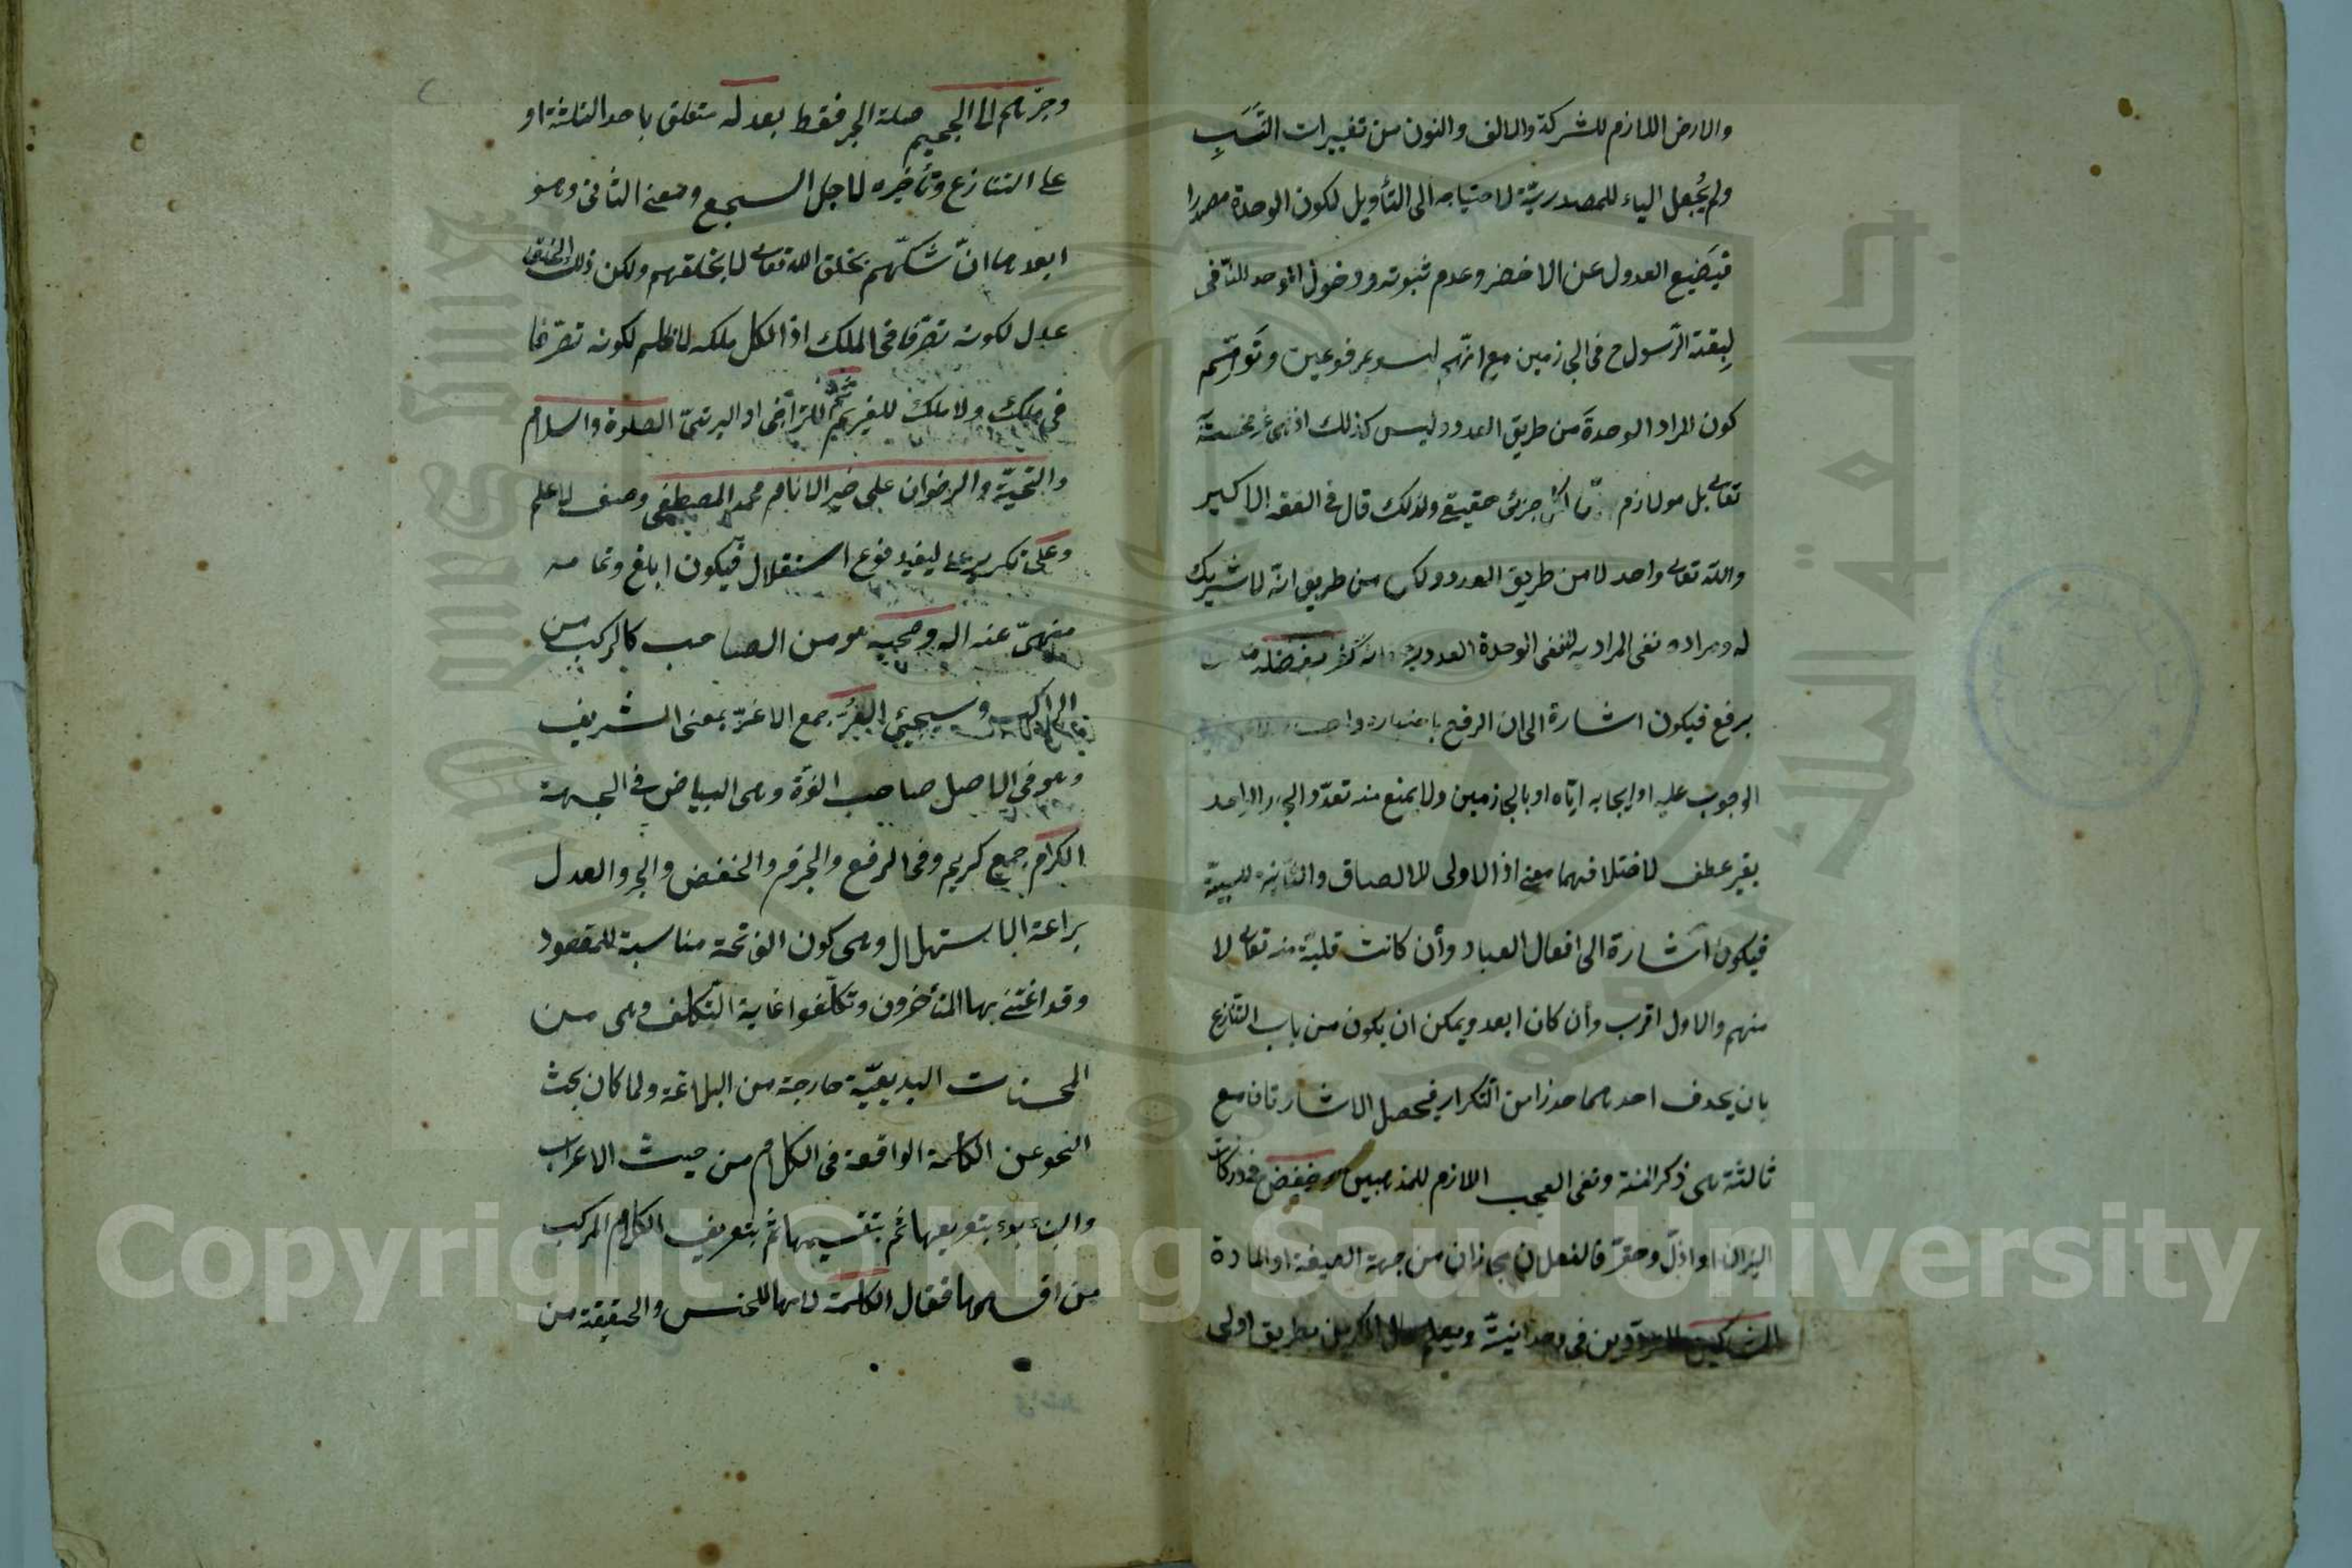 والارض اللازم للشركة والالف والنون من تغييرات النسب
ولم يُجعل الياء للمصدرية لاحتياجه الى التأويل لكون الوحدة مصدرا
فيضيع العدول عن الاخضر وعدم ثبوته ودخول الموحد للنافى
كون المراد الوحدة من طريق العدد وليس كذلك
تعالى بل هو لازم جزئى حقيقى ولذلك قال فى الفقه الاكبر
والله تعالى واحد لا من طريق العدد ولكن من طريق انه لا شريك
له ومراده نفى المراد به لا نفى الوحدة العددية بفضله
برفع فيكون اشارة الى ان الرفع باختياره
الوجوب عليه او ايجابه اياه او بالجازمين ولا يمنع منه تعدد الجر الواحد
بغير عطف لاختلافهما معنى اذ الاولى للالصاق والثانية للسببية
فيكون اشارة الى افعال العباد وأن كانت قلبية منه تعالى لا
منهم والاول اقرب وأن كان ابعد ويمكن ان يكون من باب التنازع
بان يحذف احدهما حذرا من التكرار فيحصل الاشارتان مع
ثالثة هى ذكر المنة ونفى العجب اللازم للمذهبين وخفض فى دركات
النيران او اذلّ وحقّر فالفعلان مجازان من جهة الصيغة او المادة
المشركين فى وحدانيته ويعلم بطريق اولى
وجزهم الى الجحيم صلة الجر فقط بعدله متعلق باحد الثلثة او
على التنازع وتأخيره لاجل السجع ومعنى الثانى وهو
ابعدها انّ شكّهم بخلق الله تعالى لا بخلقهم ولكن ذلك الخلق
عدل لكونه تصرّفا فى الملك اذ الكل ملكه لا ظلم لكونه تصرّفا
فى ملك ولا ملك للغير ثمّ للتراخى او الرتبىّ الصلوة والسلام
والتحيّة والرضوان على خير الانام محمد المصطفى وصف لا علم
وعلى تكرير على ليفيد نوع استقلال فيكون ابلغ وتحاميه
منهىّ عنه اله وصحبه هو من الصاحب كالركب من
الراكب وسيجئ الغُرّ جمع الاغرّ بمعنى الشريف
وهو فى الاصل صاحب الغرّة وهى البياض فى الجبهة
الكرام جمع كريم وفى الرفع والجزم والخفض والجر والعدل
براعة الاستهلال وهى كون الفاتحة مناسبة للمقصود
وقد اعتنى بها المتأخرون وتكلّفوا غاية التّكلف وهى من
المحسنات البديعيّة خارجة من البلاغة ولما كان بحث
النحو عن الكلمة الواقعة فى الكلام من حيث الاعراب
والبناء بدء بتعريفها ثم بتقسيمها ثم بتعريف الكلام المركب
من اقسامها فقال الكلمة لامها للجنس والحقيقة من
Copyright © King Saud University
جامعة الملك سعود